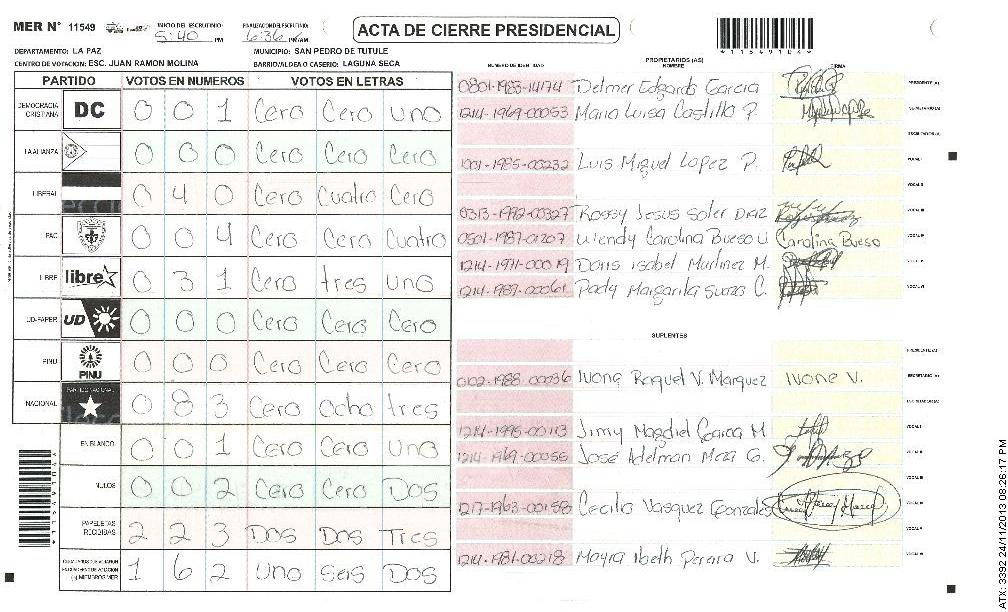 MER N° 11549 INICIO DEL ESCRUTINIO: 5:40 PM FINALIZACION DEL ESCRUTINIO: 6:36 PM/AM
ACTA DE CIERRE PRESIDENCIAL
11549101
DEPARTAMENTO: LA PAZ MUNICIPIO: SAN PEDRO DE TUTULE
CENTRO DE VOTACION: ESC. JUAN RAMON MOLINA BARRIO/ALDEA O CASERIO: LAGUNA SECA
PARTIDO VOTOS EN NUMEROS VOTOS EN LETRAS
DEMOCRACIA CRISTIANA DC 0 0 1 Cero Cero Uno
LA ALIANZA 0 0 0 Cero Cero Cero
LIBERAL 0 4 0 Cero Cuatro Cero
PAC 0 0 4 Cero Cero Cuatro
LIBRE libre 0 3 1 Cero tres Uno
UD-FAPER UD 0 0 0 Cero Cero Cero
PINU PINU 0 0 0 Cero Cero Cero
NACIONAL PARTIDO NACIONAL 0 8 3 Cero Ocho tres
EN BLANCO 0 0 1 Cero Cero Uno
NULOS 0 0 2 Cero Cero Dos
PAPELETAS RECIBIDAS 2 2 3 Dos Dos Tres
(+) MIEMBROS MER 1 6 2 Uno Seis Dos
PROPIETARIOS (AS)
NUMERO DE IDENTIDAD NOMBRE FIRMA
0801-1983-14174 Delmer Edgardo Garcia PRESIDENTE (A)
1214-1969-00053 Maria Luisa Castillo P. SECRETARIO (A)
ESCRUTADOR (A)
1001-1985-00232 Luis Miguel Lopez P. VOCAL I
VOCAL II
0313-1992-00327 Rossy Jesus Soler Diaz VOCAL III
0501-1987-01207 Wendy Carolina Bueso U. Carolina Bueso VOCAL IV
1214-1971-00019 Doris Isabel Martinez M. VOCAL V
1214-1987-00061 Pady Margarita Suazo C. VOCAL VI
SUPLENTES
PRESIDENTE (A)
0102-1988-00036 Ivone Raquel V. Marquez Ivone V. SECRETARIO (A)
ESCRUTADOR (A)
1214-1995-00113 Jimy Magdiel Garcia M VOCAL I
1214-1969-00055 José Adelman Meza G. VOCAL II
1217-1963-00158 Cecilio Vasquez Gonzales VOCAL III
VOCAL V
1214-1981-00218 Mayra Ibeth Perara V. VOCAL VI
ATX: 3392 24/11/2013 08:26:17 PM